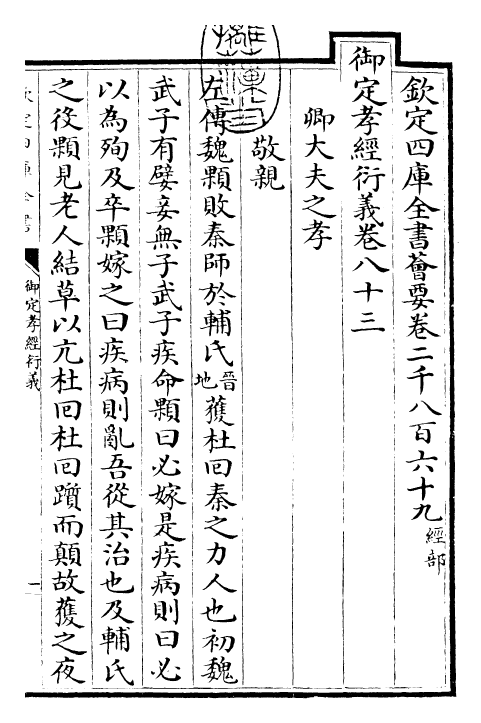 欽定四庫全書薈要卷二千八百六十九 經部
御定孝經衍義卷八十三
卿大夫之孝
敬親
左傳魏顆敗秦師於輔氏晉地獲杜回秦之力人也初魏
武子有嬖妾無子武子疾命顆曰必嫁是疾病則曰必
以為殉及卒顆嫁之曰疾病則亂吾從其治也及輔氏
之役顆見老人結草以亢杜回杜回躓而顛故獲之夜
御定孝經衍義
一